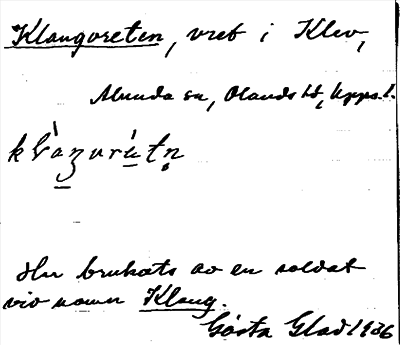 Klangvreten, vret i Klev,
Alunda sn, Olands hd, Upps. l.
Har brukats av en soldat
vid namn Klang.
Gösta Glad 1936